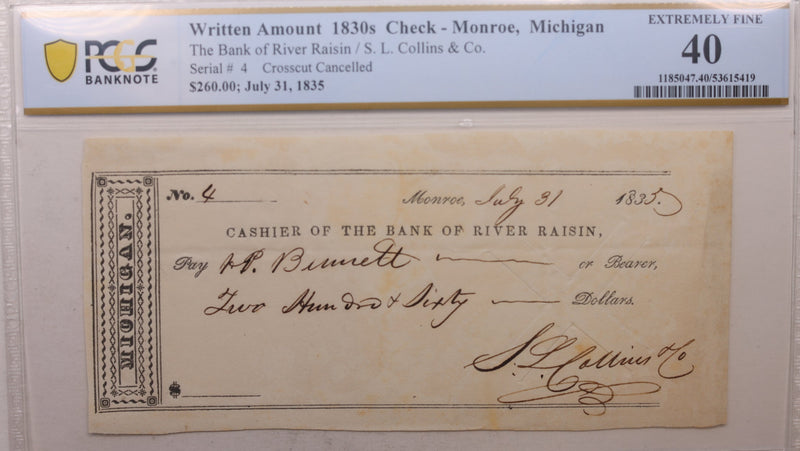 Written Amount 1830s Check - Monroe, Michigan
The Bank of River Raisin / S. L. Collins & Co.
Serial # 4 Crosscut Cancelled
$260.00; July 31, 1835
PCGS
BANKNOTE
EXTREMELY FINE
40
1185047.40/53615419
MICHIGAN.
No. 4
Monroe, July 31 1835.
CASHIER OF THE BANK OF RIVER RAISIN,
Pay P. Bennett or Bearer,
Two Hundred & Sixty Dollars.
$
S. L. Collins & Co